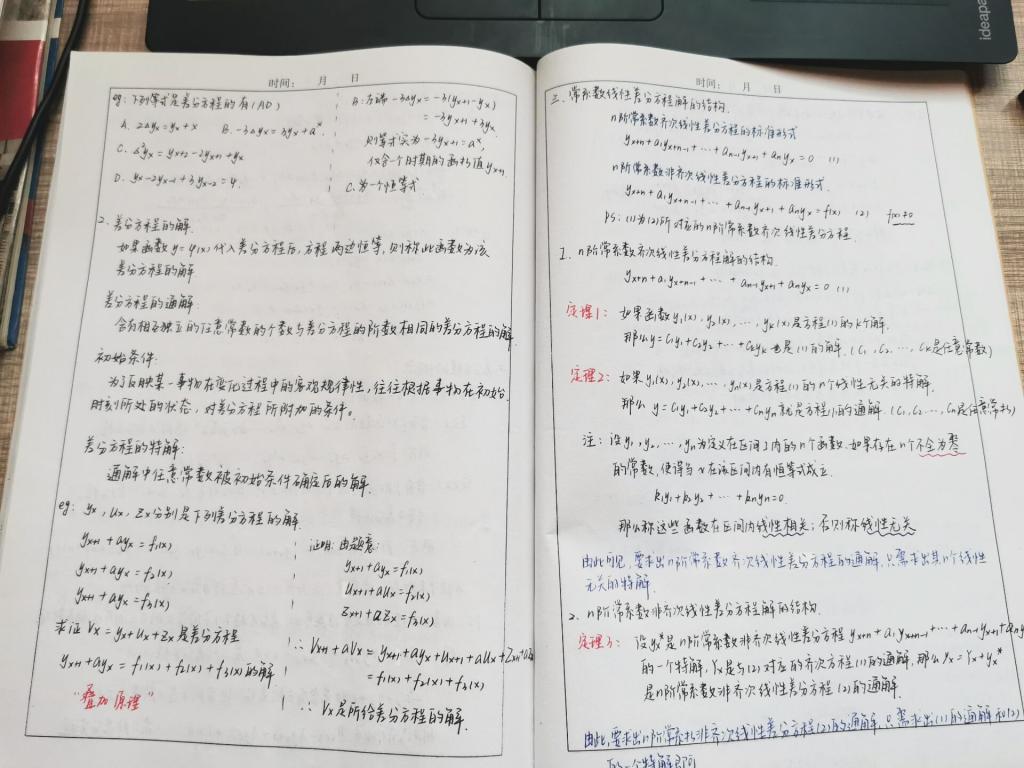 ideapa
时间： 月 日
eg: 下列等式是差分方程的有(AD)
A. 2Δyx = yx + x B. -3Δyx = 3yx + aˣ
C. Δ²yx = yx+2 - 2yx+1 + yx
D. yx - 2yx-1 + 3yx-2 = 4.
B: 左端 -3Δyx = -3(yx+1 - yx)
= -3yx+1 + 3yx
则等式实为 -3yx+1 = aˣ,
仅含一个时期的函数值yx+1
C. 为一个恒等式
2. 差分方程的解.
如果函数 y = φ(x) 代入差分方程后, 方程两边恒等, 则称此函数为该
差分方程的解
差分方程的通解:
含有相互独立的任意常数的个数与差分方程的阶数相同的差分方程的解.
初始条件:
为了反映某一事物在变化过程中的客观规律性, 往往根据事物在初始
时刻所处的状态, 对差分方程所附加的条件。
差分方程的特解:
通解中任意常数被初始条件确定后的解.
eg: yx, ux, zx分别是下列差分方程的解.
yx+1 + ayx = f1(x)
yx+1 + ayx = f2(x)
yx+1 + ayx = f3(x)
求证 Vx = yx + ux + zx 是差分方程
yx+1 + ayx = f1(x) + f2(x) + f3(x) 的解
"叠加原理"
证明: 由题意:
yx+1 + ayx = f1(x)
ux+1 + aux = f2(x)
zx+1 + azx = f3(x)
∴ Vx+1 + aVx = yx+1 + ayx + ux+1 + aux + zx+1 + azx
= f1(x) + f2(x) + f3(x)
∴ Vx是所给差分方程的解.
时间： 月 日
三. 常系数线性差分方程解的结构.
n阶常系数齐次线性差分方程的标准形式
yx+n + a1yx+n-1 + ⋯ + an-1yx+1 + anyx = 0 (1)
n阶常系数非齐次线性差分方程的标准形式.
yx+n + a1yx+n-1 + ⋯ + an-1yx+1 + anyx = f(x) (2) f(x)≠0
PS: (1)为(2)所对应的n阶常系数齐次线性差分方程.
1. n阶常系数齐次线性差分方程解的结构.
yx+n + a1yx+n-1 + ⋯ + an-1yx+1 + anyx = 0 (1)
定理1: 如果函数y1(x), y2(x), ⋯, yk(x)是方程(1)的k个解.
那么y = C1y1 + C2y2 + ⋯ + Ckyk 也是(1)的解. (C1, C2, ⋯, Ck是任意常数)
定理2: 如果y1(x), y2(x), ⋯, yn(x)是方程(1)的n个线性无关的特解.
那么 y = C1y1 + C2y2 + ⋯ + Cnyn 就是方程(1)的通解. (C1, C2 ⋯, Cn是任意常数)
注: 设y1, y2, ⋯, yn为定义在区间I内的n个函数. 如果存在n个不全为零
的常数, 使得当x在该区间内有恒等式成立.
k1y1 + k2y2 + ⋯ + knyn = 0.
那么称这些函数在区间内线性相关; 否则称线性无关
由此可见, 要求出n阶常系数齐次线性差分方程的通解, 只需求出其n个线性
无关的特解.
2. n阶常系数非齐次线性差分方程解的结构.
定理3: 设yx*是n阶常系数非齐次线性差分方程 yx+n + a1yx+n-1 + ⋯ + an-1yx+1 + any
的一个特解, Yx是与(2)对应的齐次方程(1)的通解, 那么 yx = Yx + yx*
是n阶常系数非齐次线性差分方程(2)的通解.
由此, 要求出n阶常系数非齐次线性差分方程(2)的通解, 只需求出(1)的通解和(2)
的一个特解即可